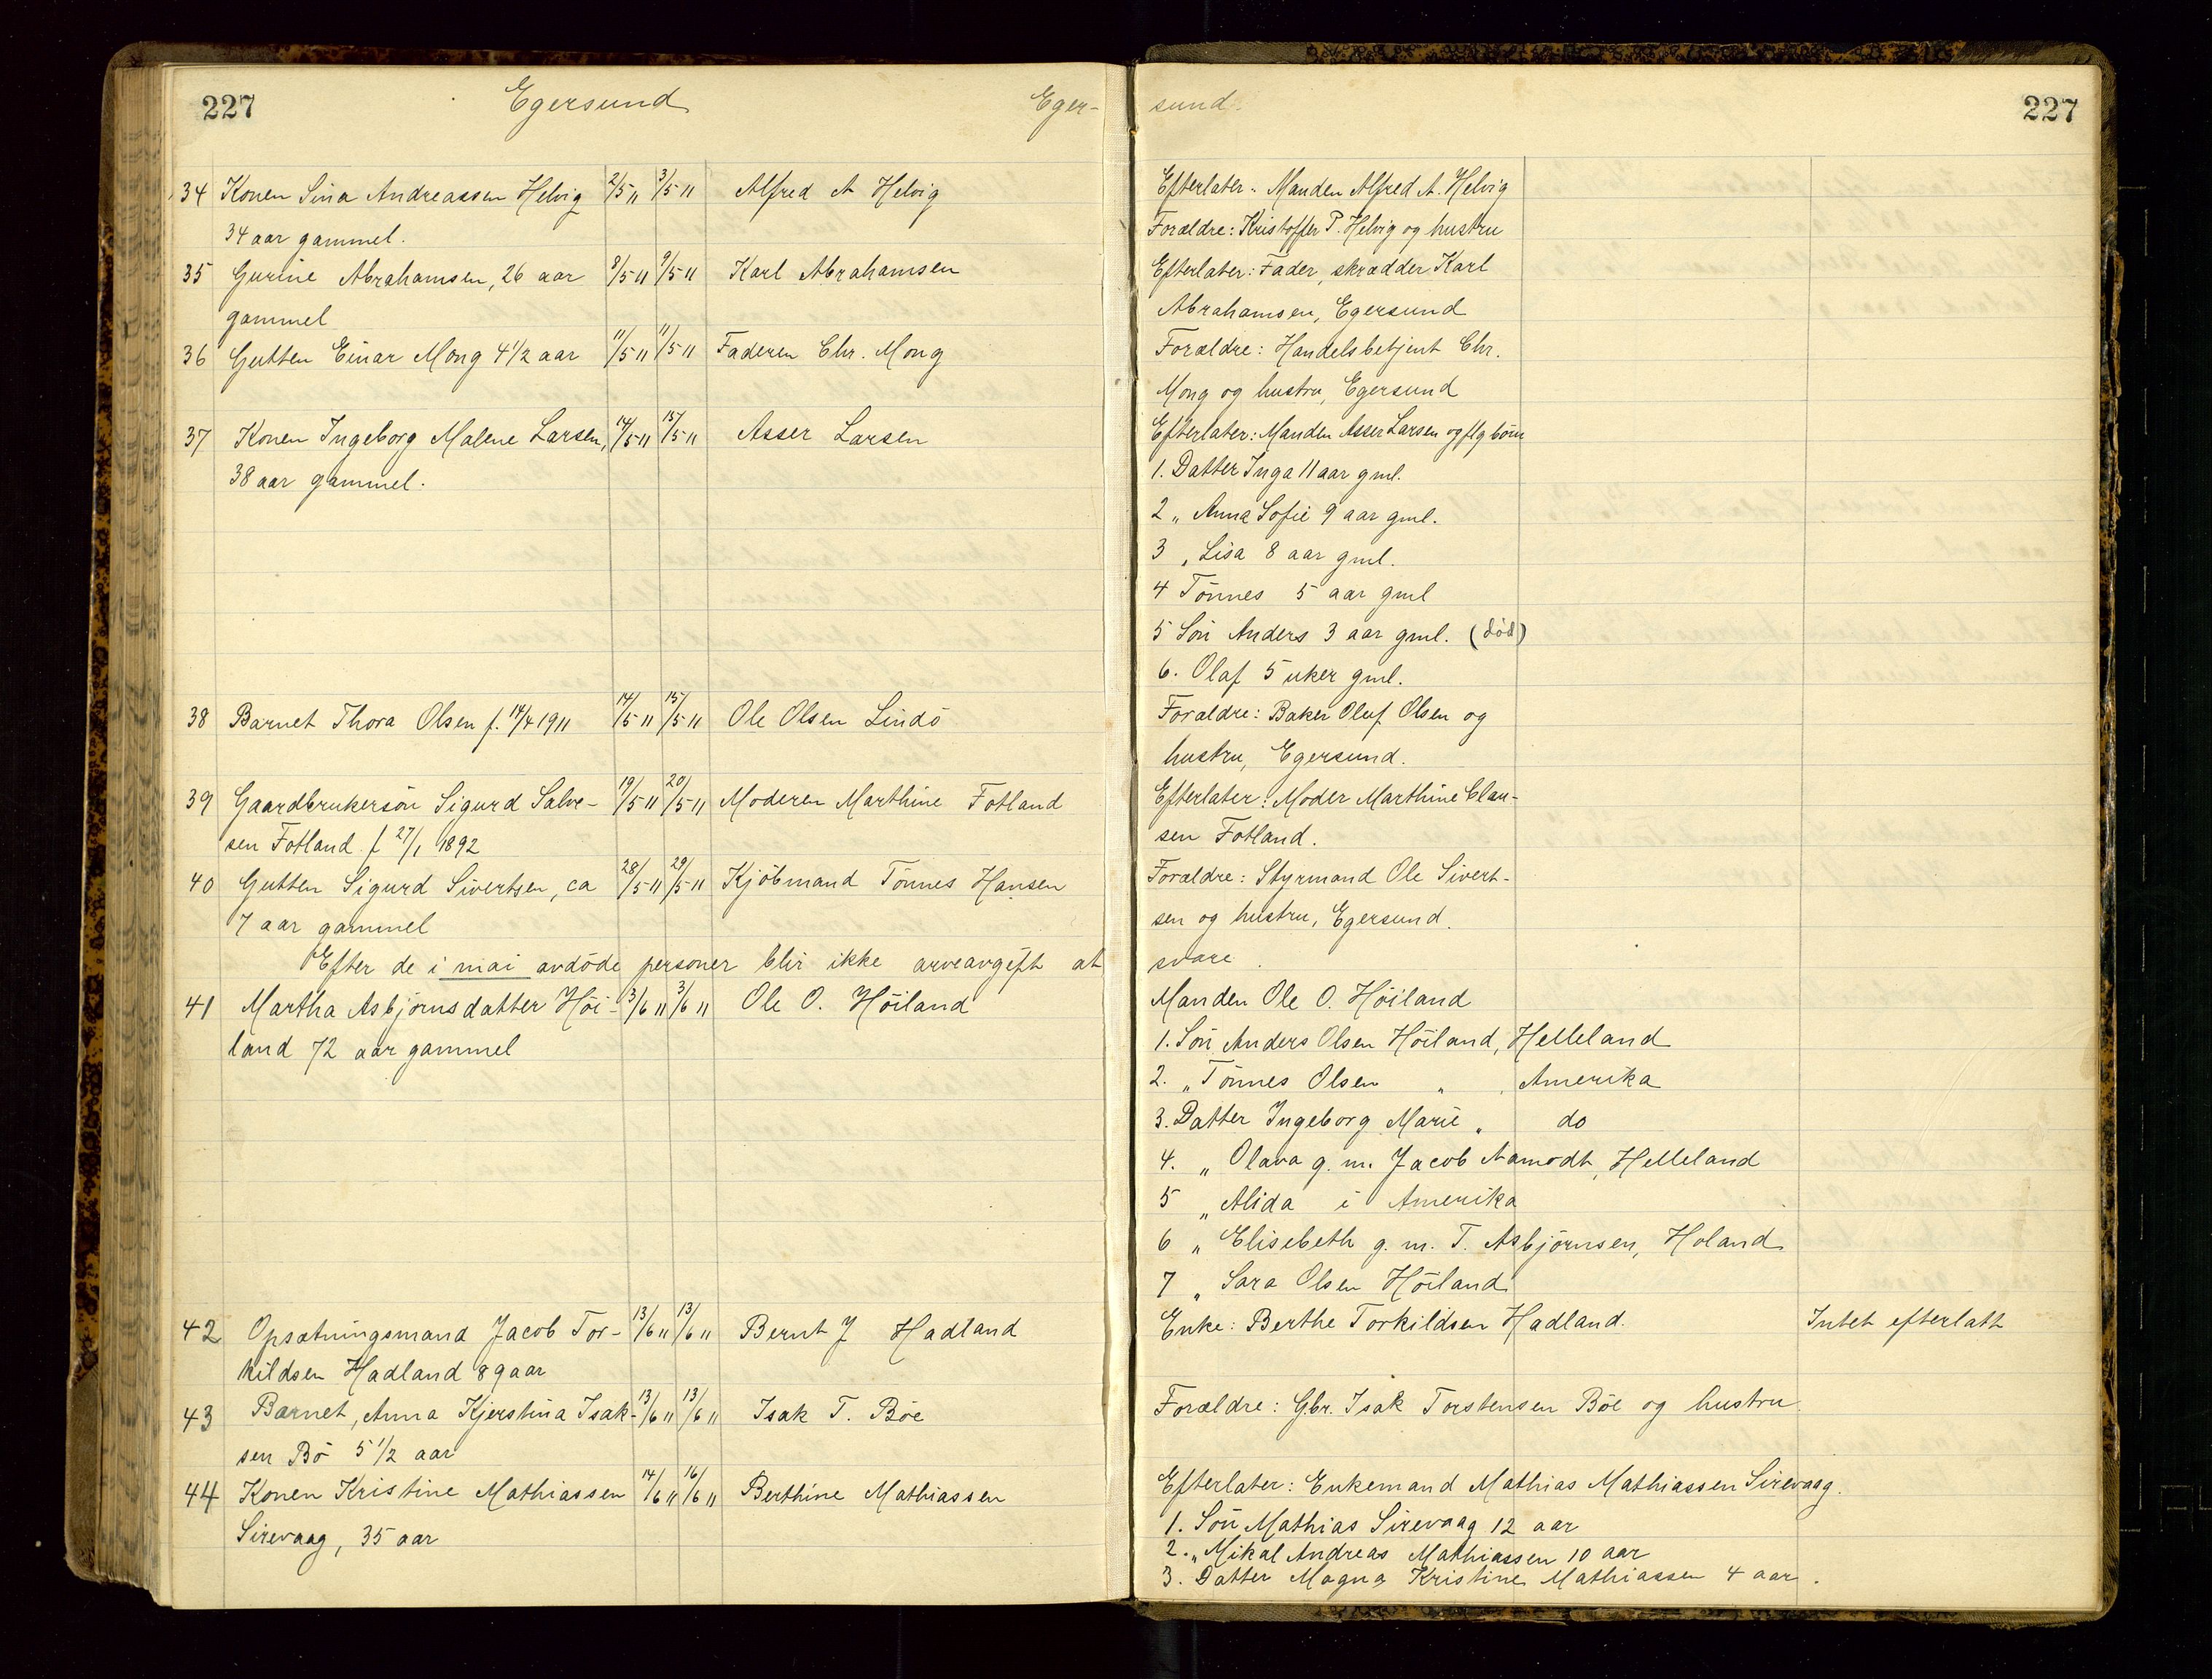 227
Egersund
Eger-
34 Konen Sina Andreassen Helvig 2/5 11 3/5 11 Alfred A Helvig
34 aar gammel.
35 Gurine Abrahamsen, 26 aar 8/5 11 9/5 11 Karl Abrahamsen
gammel
36 Gutten Einar Mong 4 1/2 aar 11/5 11 11/5 11 Faderen Chr. Mong
37 Konen Ingeborg Malene Larsen, 14/5 11 15/5 11 Asser Larsen
38 aar gammel.
38 Barnet Thora Olsen f. 14/4 1911 14/5 11 15/5 11 Ole Olsen Lindö
39 Gaardbrukersön Sigurd Salve- 19/5 11 20/5 11 Moderen Marthine Fotland
sen Fotland f 27/1 1892
40 Gutten Sigurd Sivertsen, ca 28/5 11 29/5 11 Kjöbmand Tönnes Hansen
7 aar gammel
Efter de i mai avdöde personer blir ikke arveavgift at
41 Martha Asbjörnsdatter Höi- 3/6 11 3/6 11 Ole O. Höiland
land 72 aar gammel
42 Opsætningsmand Jacob Tor- 13/6 11 13/6 11 Bernt J Hadland
kildsen Hadland 89 aar
43 Barnet, Anna Kjerstina Isak- 13/6 11 13/6 11 Isak T. Böe
sen Bö 5 1/2 aar
44 Konen Kristine Mathiassen 14/6 11 16/6 11 Berthine Mathiassen
Sirevaag, 35 aar
sund.
227
Efterlater: Manden Alfred A. Helvig
Forældre: Kristoffer P. Helvig og hustru
Efterlater: Fader, skrædder Karl
Abrahamsen, Egersund
Forældre: Handelsbetjent Chr.
Mong og hustru, Egersund
Efterlater: Manden Asser Larsen og flg börn
1. Datter Inga 11 aar gml.
2 „ Anna Sofie 9 aar gml.
3 „ Lisa 8 aar gml.
4 Tönnes 5 aar gml
5 Sön Anders 3 aar gml. (död)
6. Olaf 5 uker gml.
Forældre: Baker Oluf Olsen og
hustru, Egersund.
Efterlater: Moder Marthine Clau-
sen Fotland.
Forældre: Styrmand Ole Sivert-
sen og hustru, Egersund.
svare.
Manden Ole O. Höiland
1. Sön Anders Olsen Höiland, Helleland
2. „ Tönnes Olsen „ , Amerika
3. Datter Ingeborg Marie „ do
4. „ Olava g. m. Jacob Aamodt, Helleland
5 „ Alida i Amerika
6 „ Elisebeth g. m. T. Asbjörnsen, Holand
7 „ Sara Olsen Höiland
Enke: Berthe Torkildsen Hadland. Intet efterlatt
Forældre: Gbr. Isak Torstensen Böe og hustru.
Efterlater: Enkemand Mathias Mathiassen Sirevaag.
1. Sön Mathias Sirevaag 12 aar
2. „ Mikal Andreas Mathiassen 10 aar
3. Datter Magna Kristine Mathiassen 4 aar.